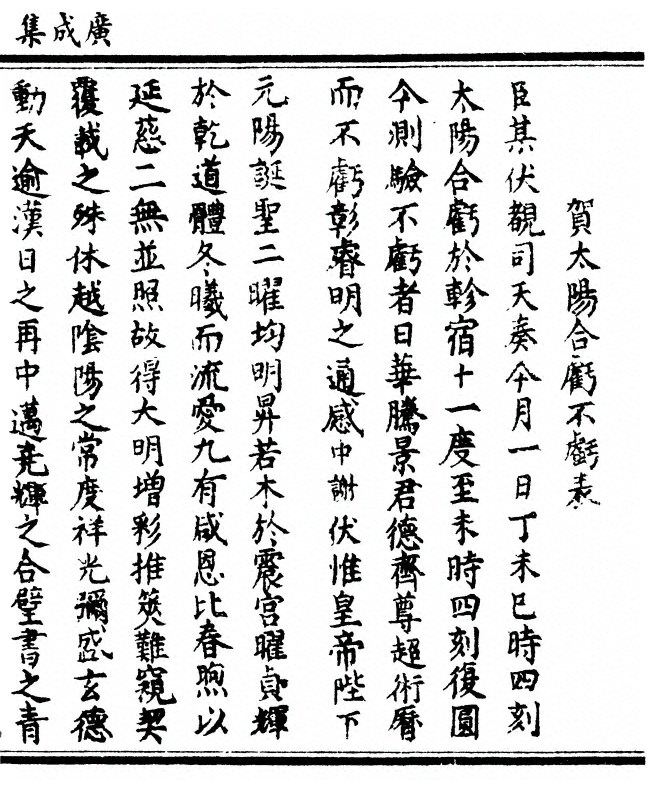 廣成集
賀太陽合虧不虧表
臣某伏覩司天奏今月一日丁未巳時四刻
太陽合虧於軫宿十一度至未時四刻復圓
今測驗不虧者日華騰景君德齊尊超術曆
而不虧彰睿明之通感中謝伏惟皇帝陛下
元陽誕聖二曜均明昇若木於震宮曜貞輝
於乾道體冬曦而流愛九有咸恩比春煦以
延慈二無並照故得大明增彩推筴難窺契
覆載之殊休越陰陽之常度祥光彌盛玄德
動天逾漢日之再中邁堯輝之合璧書之青